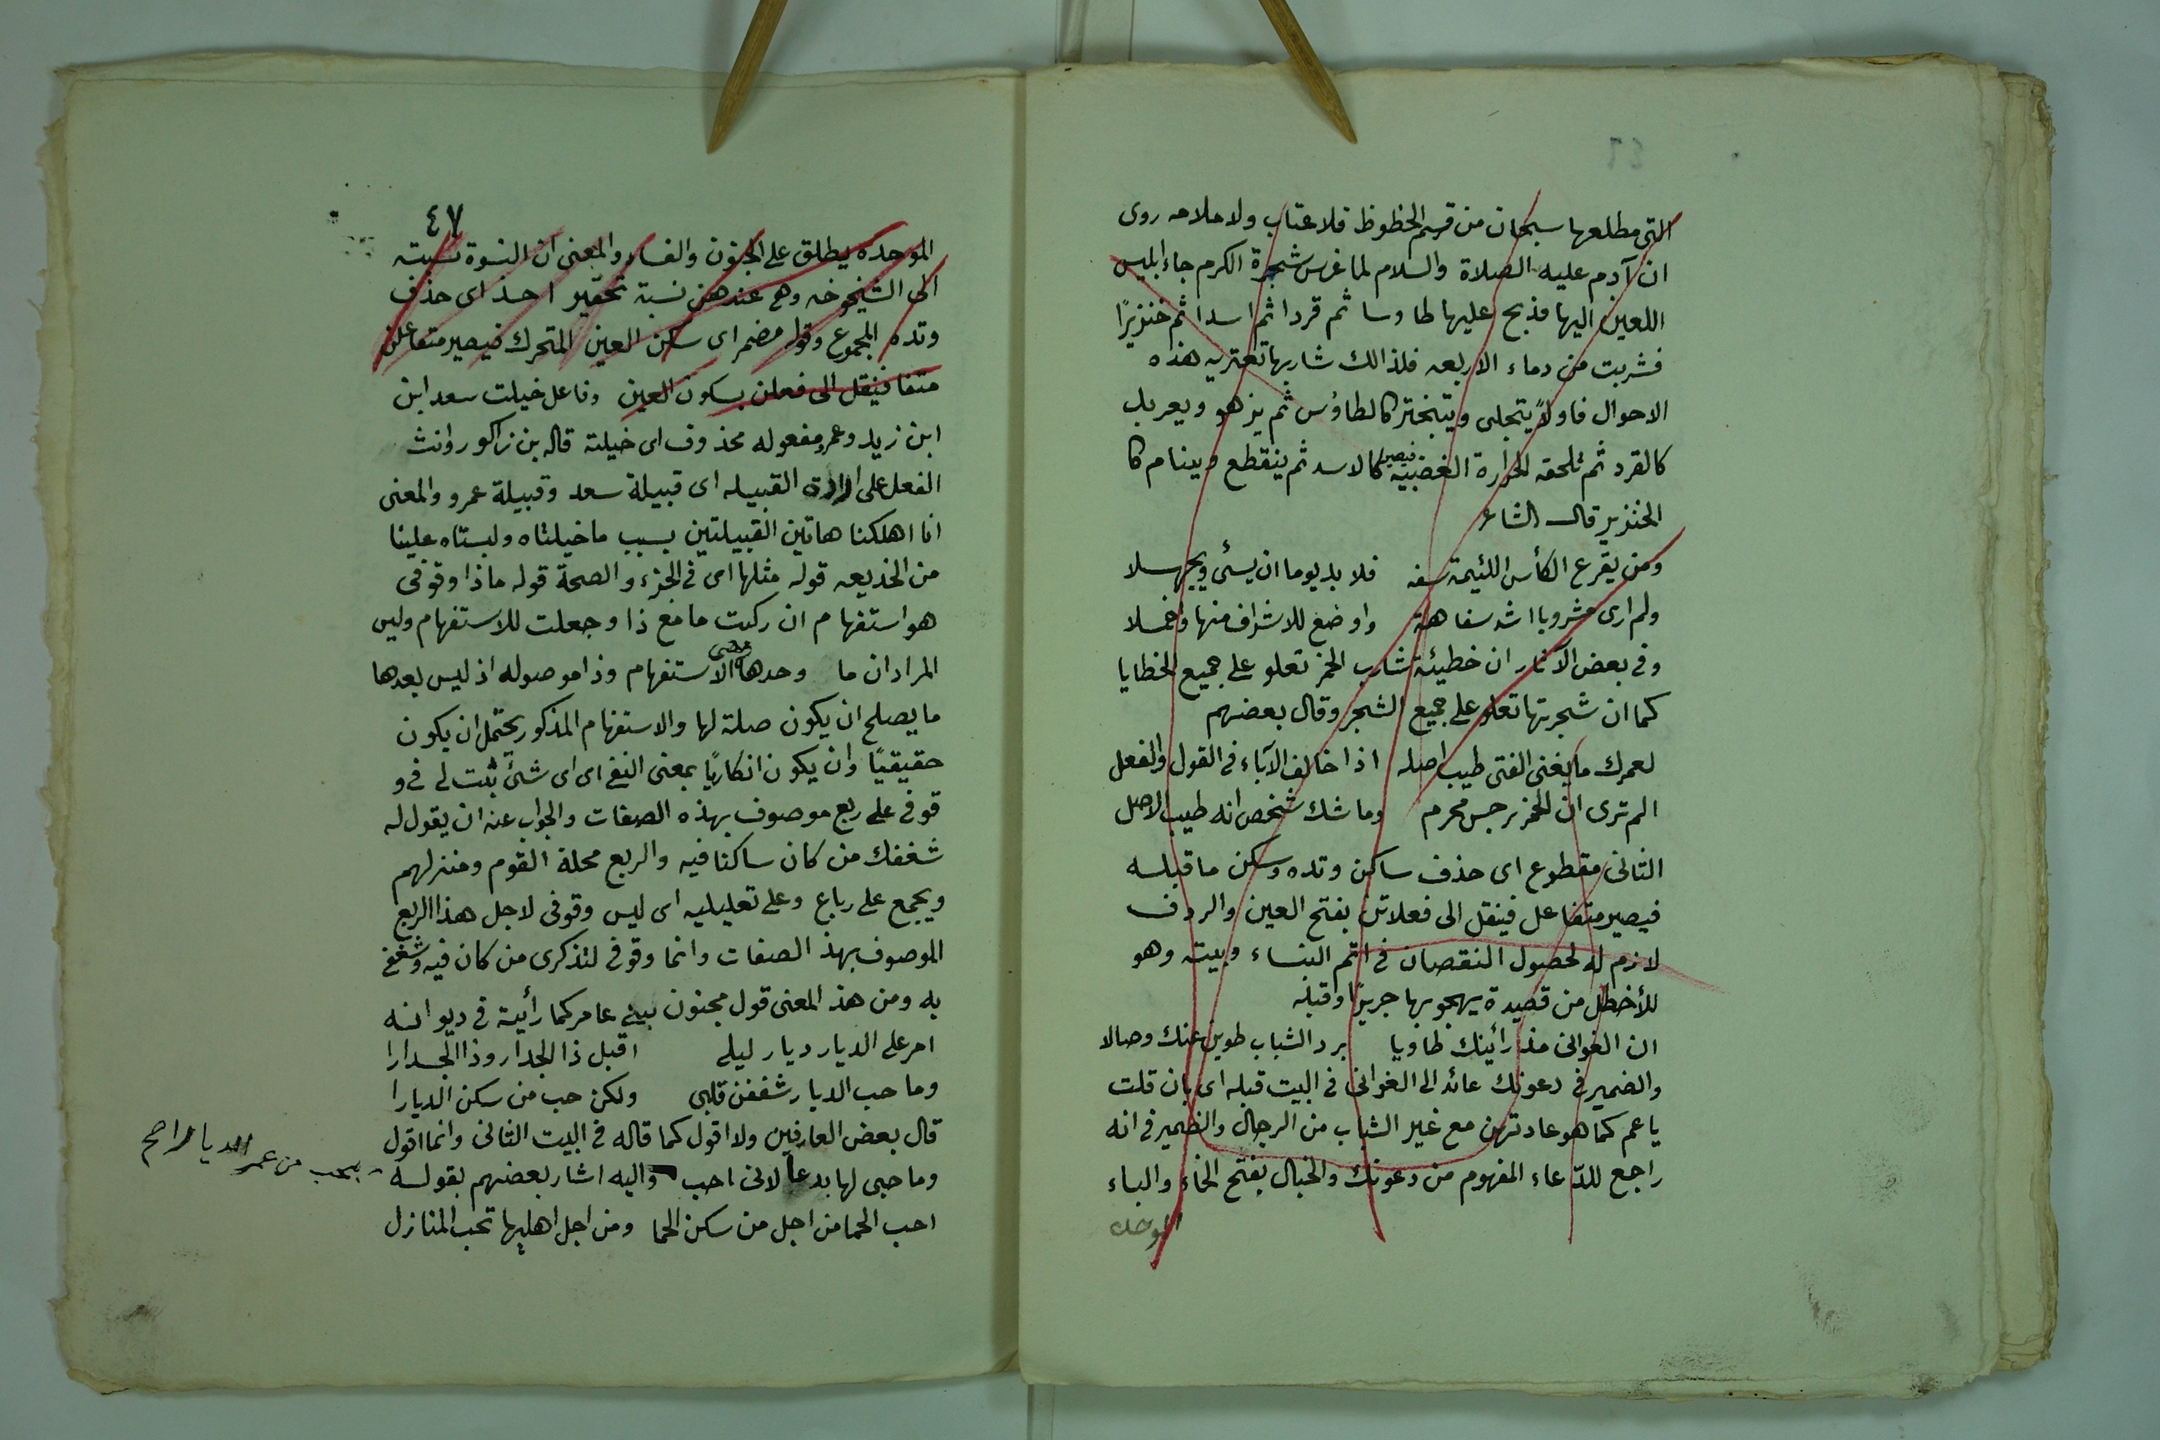 التى مطلعها سبحان من قسم الحظوظ فلا عتاب ولا ملامه روى
ان آدم عليه الصلاة والسلام لما غرس شجرة الكرم جاء ابليس
اللعين اليها فذبح عليها طاوسا ثم قردا ثم اسدا ثم خنزيرًا
فشربت من دماء الاربعه فلذالك شاربها تعتريه هذه
الاحوال فاولاً يتجلى ويتبختر كالطاؤس ثم يزهو ويعربد
كالقرد ثم تلحقه الحرارة الغضبيه فيصير كالاسد ثم ينقطع وينام كا
الخنزير قال الشاعر
ومن يقرع الكأس اللئيمة سفه فلا بد يوما ان يسئ ويجهلا
ولم ارى مشروبا اشد سفاهة واوضع للاشراف منها واخملا
وفى بعض الآثار ان خطيئة شارب الخمر تعلو على جميع الخطايا
كما ان شجرتها تعلو على جميع الشجر وقال بعضهم
لعمرك ما يغنى الفتى طيب اصله اذا خالف الآباء فى القول والفعل
الم ترى ان الخمر رجس محرم وما شك شخص انه طيب الاصل
الثانى مقطوع اى حذف ساكن وتده وسكن ما قبله
فيصير متفاعل فينقل الى فعلاتن بفتح العين والردف
لازم له لحصول النقصان فى اتم البناء وبيته وهو
للأخطل من قصيدة يهجو بها جريرا وقبله
ان الغوانى مذ رائينك طاويا برد الشباب طوين عنك وصالا
والضمير فى دعونك عائد الى الغوانى فى البيت قبله اى بان قلت
يا عم كما هو عادتهن مع غير الشباب من الرجال والضمير فى انه
راجع للدّعاء المفهوم من دعونك والخبال بفتح الخاء والباء
الموحده
٤٧
الموحده يطلق على الجنون والفساد والمعنى ان النسوة نسبته
الى الشيخوخه وهى عندهن نسبة تحقير احذ اى حذف
وتده المجموع وقوله مضمر اى سكن العين المتحرك فيصير متفاعلن
متفا فينقل الى فعلن بسكون العين وفاعل خيلت سعد ابن
ابن زيد وعمرو مفعوله محذوف اى خيلته قاله بن زاكور وانث
الفعل على ارادة القبيله اى قبيلة سعد وقبيلة عمرو والمعنى
انا اهلكنا هاتين القبيلتين بسبب ما خيلتاه ولبستاه علينا
من الخديعه قوله مثلها اى فى الجزء والصحة قوله ماذا وقوفى
هو استفهام ان ركبت ما مع ذا وجعلت للاستفهام وليس
المراد ان ما وحدها الاستفهام وذا موصوله اذ ليس بعدها
ما يصلح ان يكون صلة لها والاستفهام المذكور يحتمل ان يكون
حقيقيًا وان يكون انكاريًا بمعنى النفى اى اى شئ ثبت لى فى و
قوفى على ربع موصوف بهذه الصفات والجواب عنه ان يقول له
شغفك من كان ساكنا فيه والربع محلة القوم ومنزلهم
ويجمع على رباع وعلى تعليليه اى ليس وقوفى لاجل هذا الربع
الموصوف بهذ الصفات وانما وقوفى لتذكرى من كان فيه وشغفى
به ومن هذ المعنى قول مجنون بينى عامر كما رائية فى ديوانه
امر على الديار ديار ليلى اقبل ذا الجدار وذا الجدارا
وما حب الديار شغفن قلبى ولكن حب من سكن الديارا
قال بعض العارفين ولا اقول كما قاله فى البيت الثانى وانما اقول
وما حبى لها بدعا لانى احب واليه اشار بعضهم بقوله
احب الحما من اجل من سكن الحما ومن اجل اهليها تحب المنازل
بحب من عمر الديارا صح